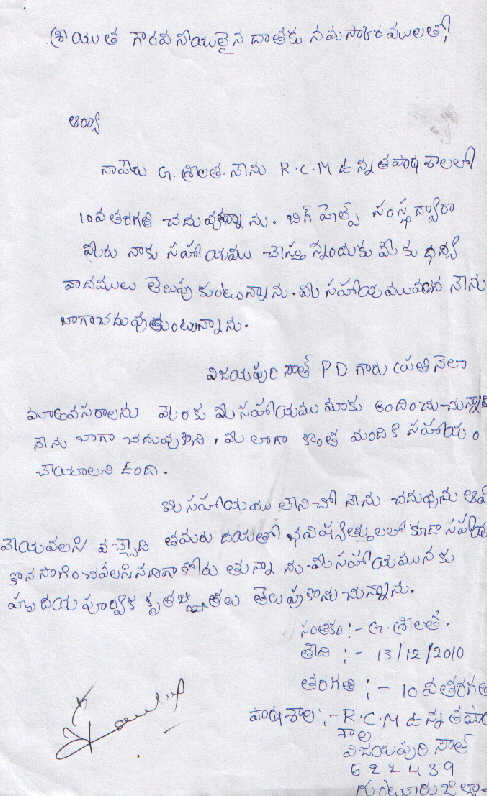 శ్రీయుత గౌరవనీయులైన దాతకు నమస్కారములతో,
ఆర్యా
నాపేరు G. శ్రీలత. నేను R.C.M ఉన్నతపాఠశాలలో
10వతరగతి చదువుతున్నాను. బిగ్ హెల్ప్ సంస్థ ద్వారా
మీరు నాకు సహాయము చేస్తున్నందుకు మీకు ధన్య
వాదములు తెలుపుకుంటున్నాను. మీ సహాయమువలన నేను
బాగాచదువుకుంటున్నాను.
విజయపురి సౌత్ PD గారు ప్రతినెలా
మాఅవసరాలను మీ సహాయము మాకు అందించుచున్నారు
నేను బాగా చదువుకొని, మీ లాగా కొంత మందికి సహాయం
చేయాలని ఉంది.
మీ సహాయము లేనిచో నేను చదువును ఆపి
వేయవలసి వచ్చేది తమరు దయతో భవిష్యత్తులలో కూడా సహాయ
కొనసాగించవలసినదిగా కోరుతున్నాను. మీ సహాయమునకు
హృదయపూర్వక కృతజ్ఞతలు తెలుపుకొనుచున్నాను.
సంతకం:- G. శ్రీలత.
తేది :- 13/12/2010
తరగతి :- 10వతరగతి
పాఠశాల :- R.C.M ఉన్నతపాఠ
శాల
విజయపురి సౌత్
522439
గుంటూరుజిల్లా.